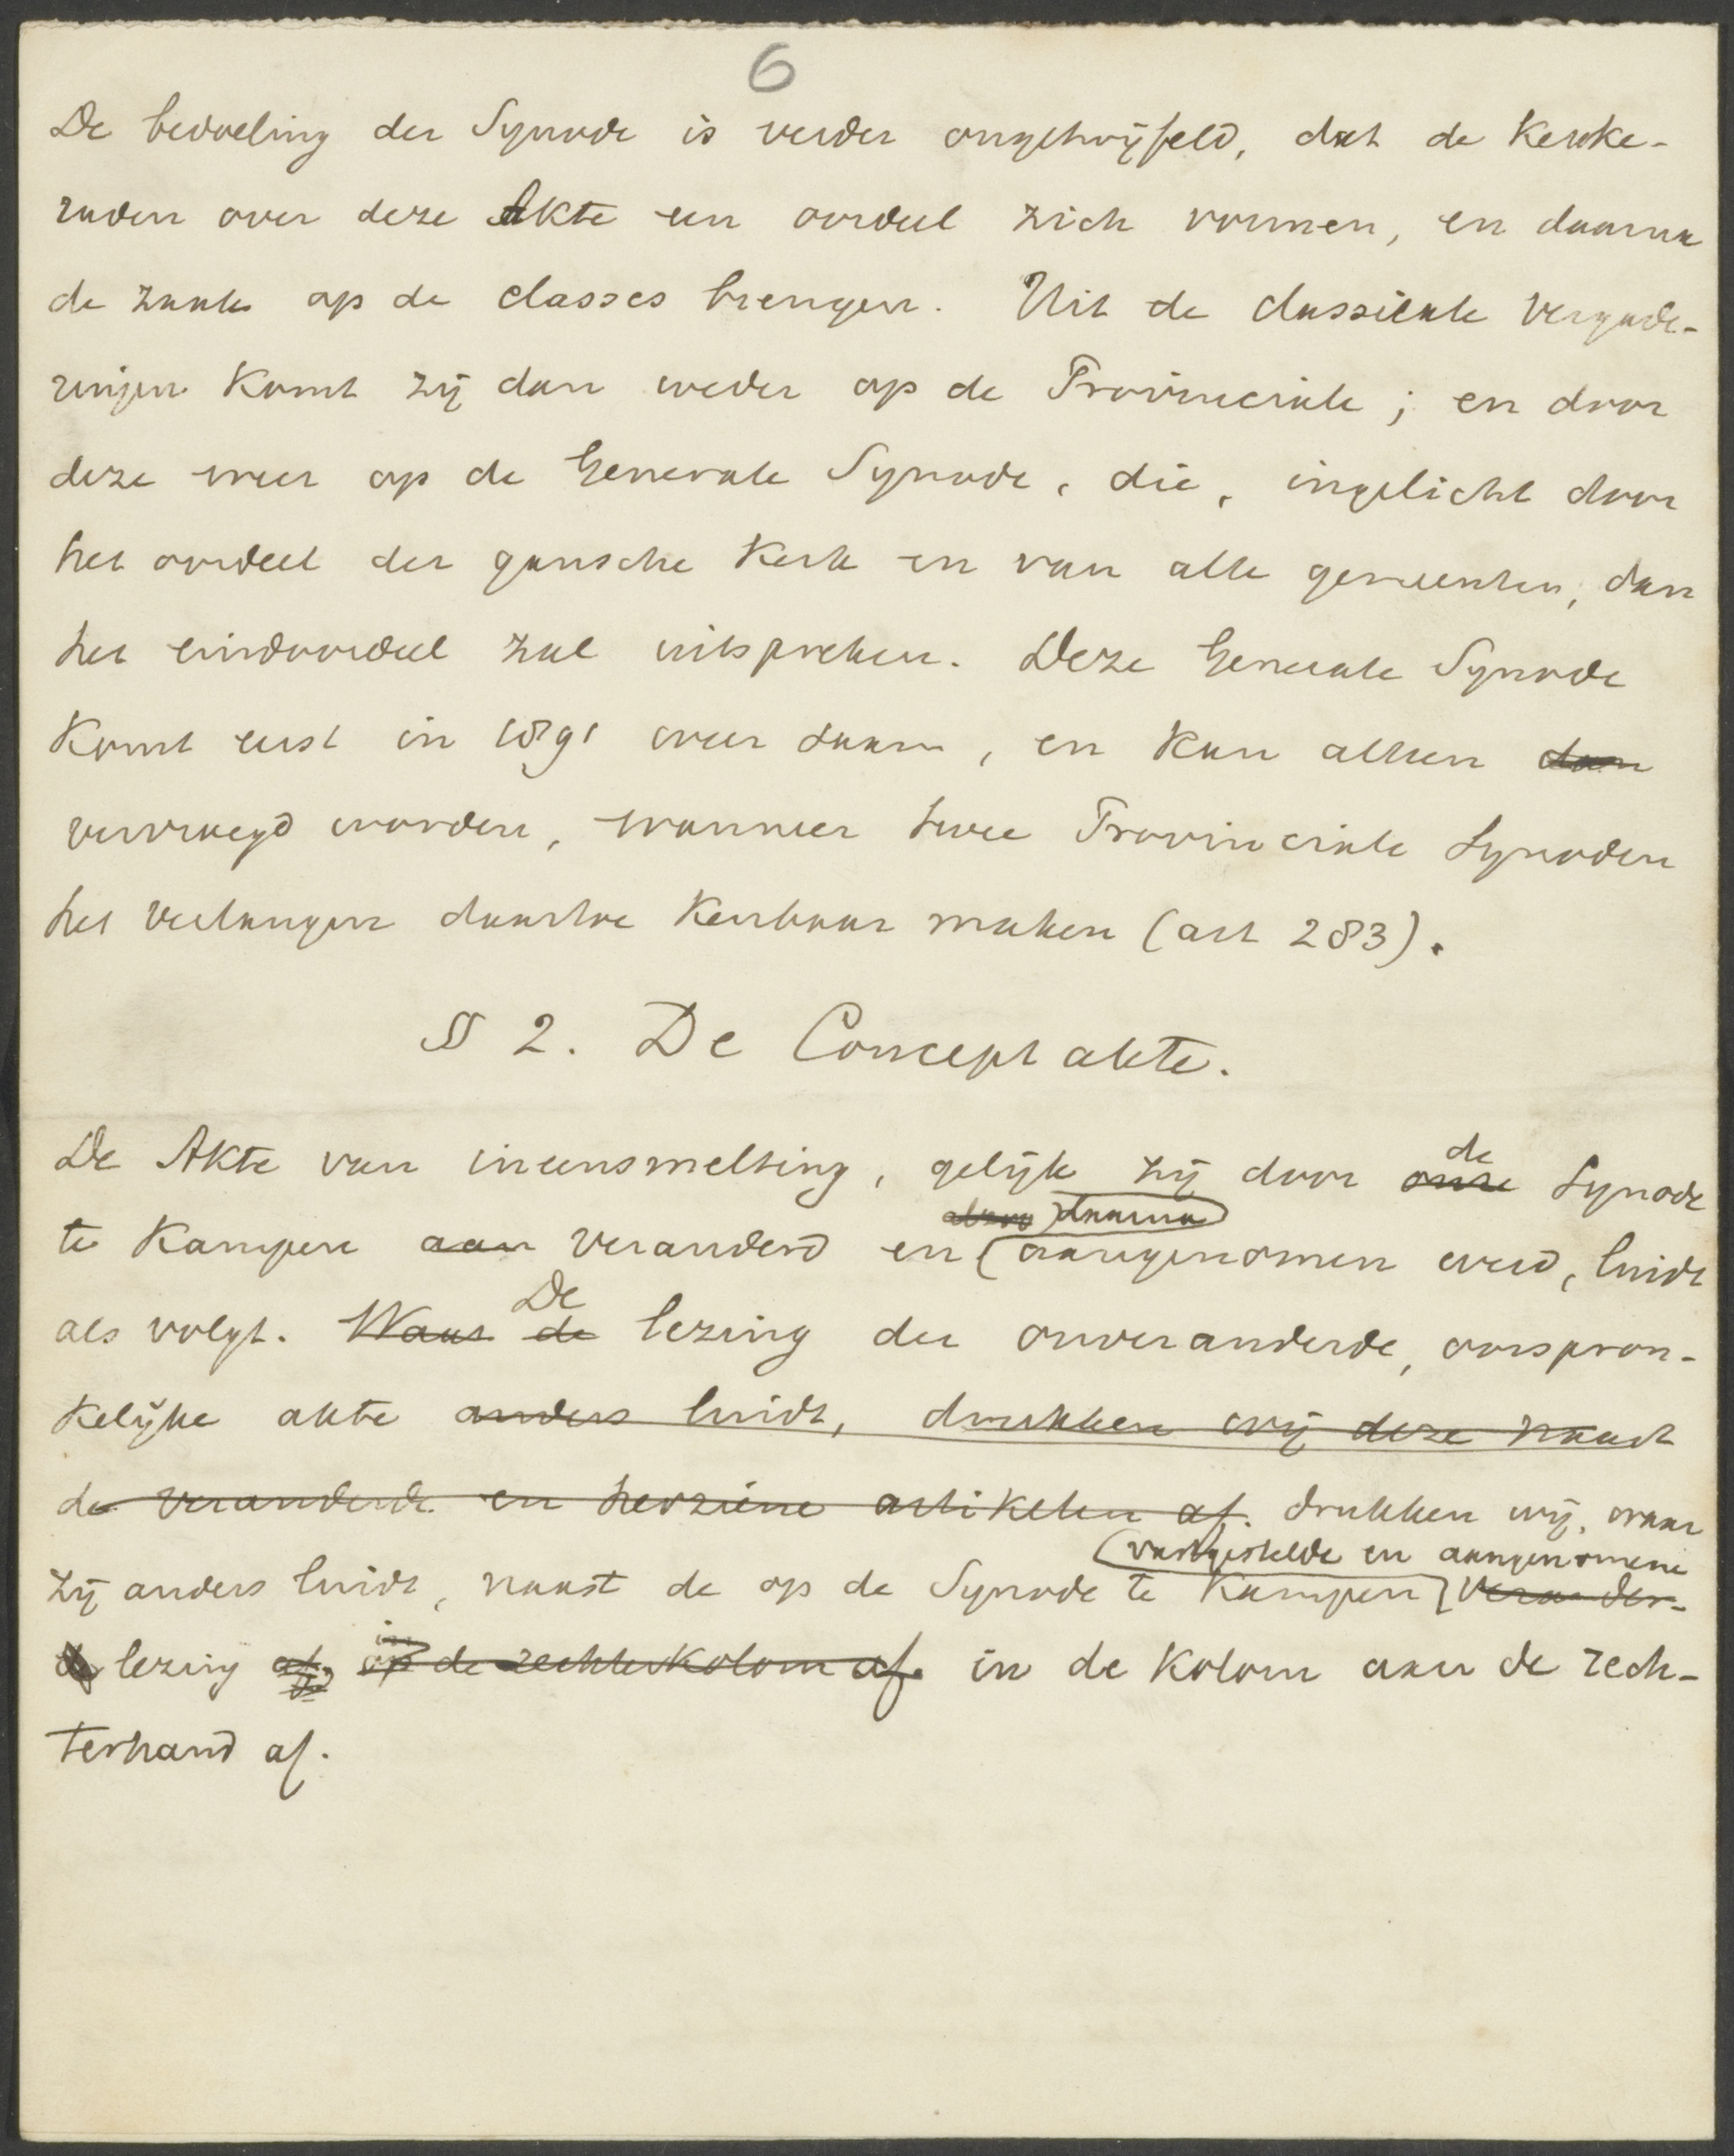 6
De bedoeling der Synode is verder ongetwijfeld, dat de Kerke-
raden over deze Akte een oordeel zich vormen, en daarna
de zaak op de classes brengen. Uit de classicale Vergade-
ringen komt zij dan weder op de Provinciale; en door
deze weer op de Generale Synode, die, ingelicht door
het oordeel der gansche Kerk en van alle gemeenten, dan
het eindoordeel zal uitspreken. Deze Generale Synode
komt eerst in 1891 weer saam, en kan alleen dan
vervroegd worden, wanneer twee Provinciale Synoden
het verlangen daartoe kenbaar maken (art 283).
§ 2. De Conceptakte.
De Akte van ineensmelting, gelijk zij door onze de Synode
te Kampen aan veranderd en daarna aangenomen werd, luidt
als volgt. Waar de De lezing der onveranderde, oorspron-
kelijke akte anders luidt, drukken wij deze naast
de veranderde en herziene artikelen af. drukken wij, waar
zij anders luidt, naast de op de Synode te Kampen vastgestelde en aangenomene verander-
de lezing af. op in de rechterkolom af. in de kolom aan de rech-
terhand af.